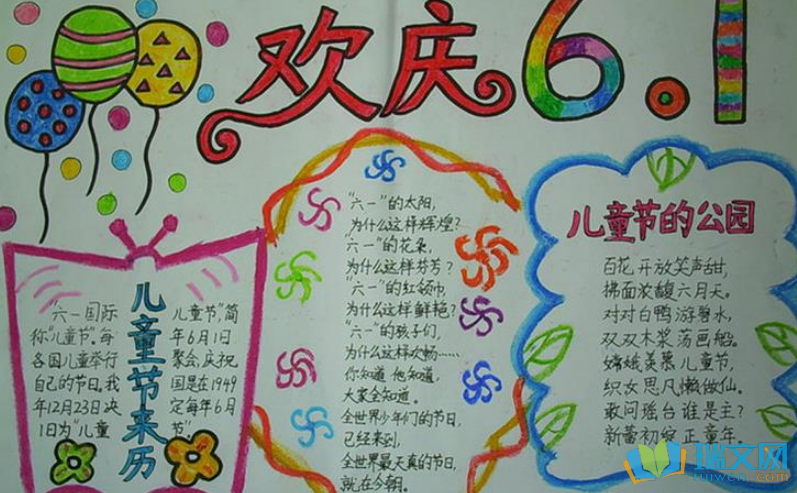 欢庆6.1
儿童节来历
"六一国际 儿童节",简
称"儿童节".每 年6月1
各国儿童举行 聚会,庆祝
自己的节日.我 国是在1949
年12月23日决 定每年6月
1日为"儿童 节".
"六一"的太阳,
为什么这样辉煌?
"六一"的花朵,
为什么这样芬芳?
"六一"的红领巾,
为什么这样鲜艳?
"六一"的孩子们,
为什么这样欢畅……
你知道 他知道,
大家全知道。
全世界少年们的节日,
已经来到,
全世界最天真的节日,
就在今朝。
儿童节的公园
百花开放笑声甜,
拂面浓馥六月天。
对对白鸭游碧水,
双双木桨荡画船。
嫦娥羡慕儿童节,
织女思凡懒做仙。
敢问瑶台谁是主?
新蕾初绽正童年。
瑞文网